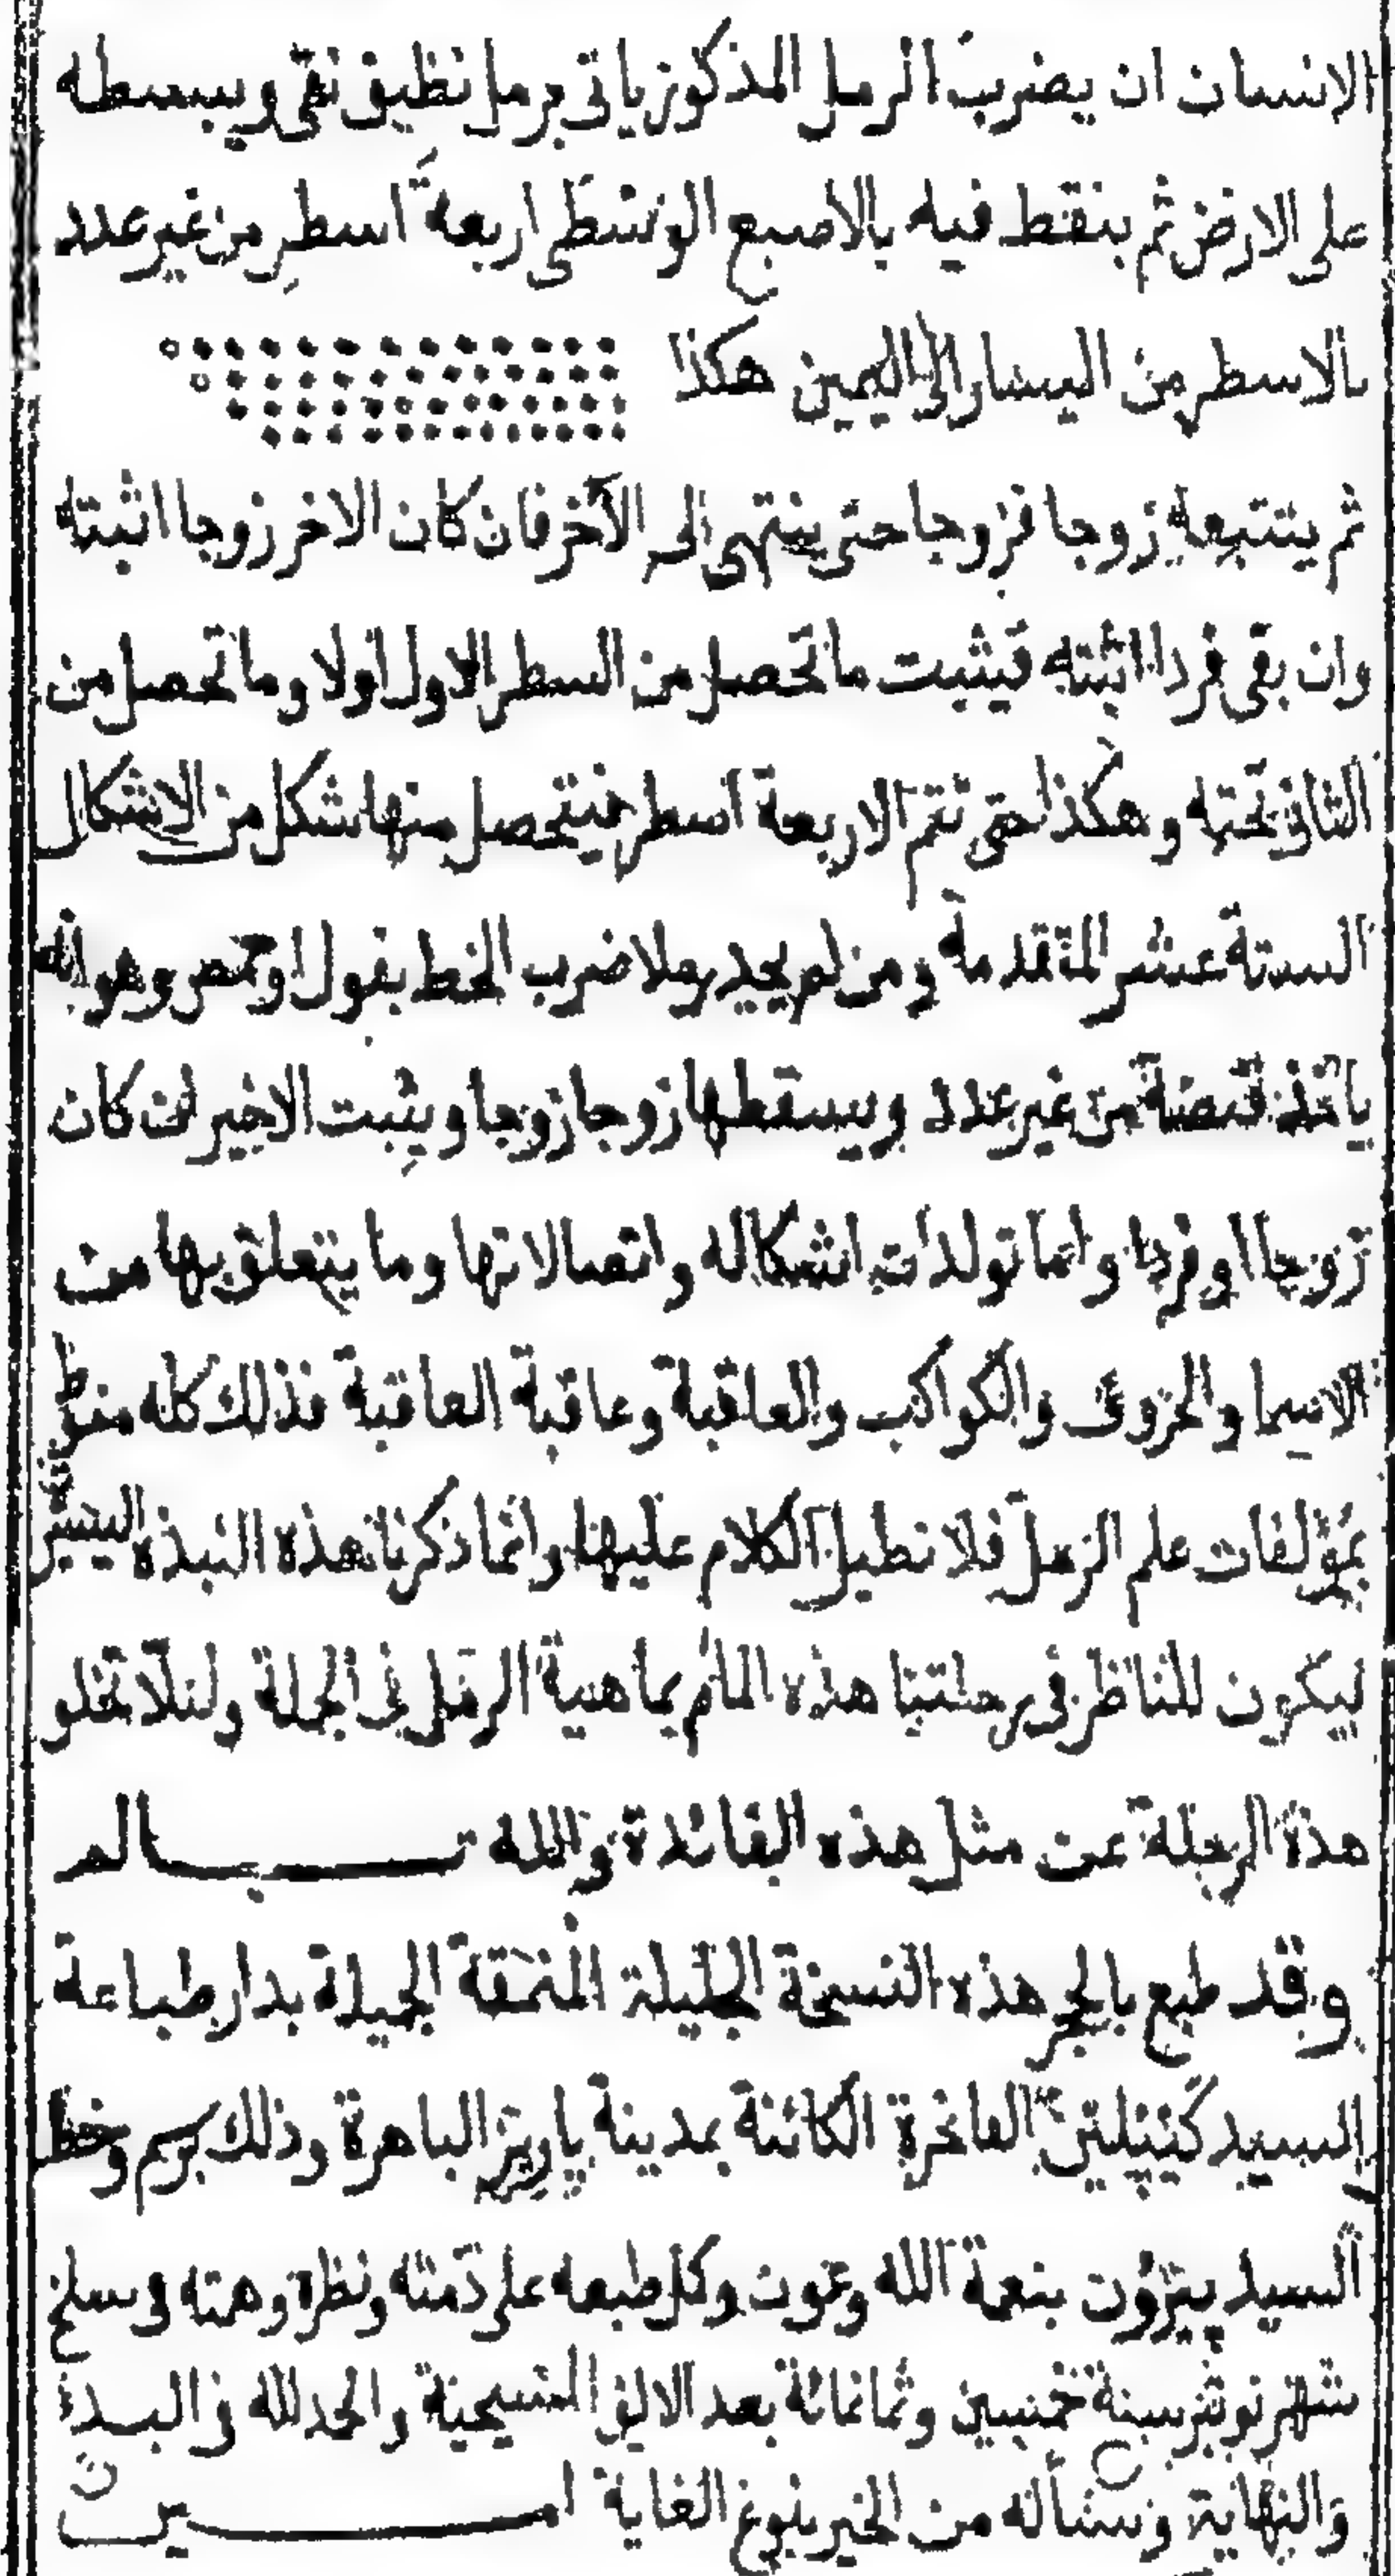 الانسان ان يضرب الرمل المذكور ياتى برمل نظيف نقى ويبسطه
على الارض ثم ينقط فيه بالاصبع الوسطى اربعة اسطر من غير عدد
بالاسطر من اليسار الى اليمين هكذا
ثم يتتبعه زوجا فزوجا حتى ينتهى الى الآخر فان كان الاخر زوجا اثبته
وان بقى فردا اثبته فيثبت ما تحصل من السطر الاول اولا وما تحصل من
الثانى تحته وهكذا حتى تتم الاربعة اسطر فيتحصل منها شكل من الاشكال
الستة عشر المتقدمة ومن لم يجد رملا ضرب الخط بفول او حمص وهو انه
ياخذ قبضة من غير عدد ويسقطها زوجا زوجا ويثبت الاخير ان كان
زوجا او فردا واما تولدات اشكاله واتصالاتها وما يتعلق بها من
الاسما والحروف والكواكب والعاقبة وعاقبة العاقبة فذلك كله منوط
بمؤلفات علم الرمل فلا نطيل الكلام عليها وانما ذكرنا هذه النبذه اليسيرة
ليكون للناظر فى رحلتنا هذه المام بماهية الرمل فى الجملة ولئلا تخلو
هذه الرحلة عن مثل هذه الفائدة والله
وقد طبع بالحجر هذه النسخة الجليلة المنمقة الجميلة بدار طباعة
السيد كَيْپلين الفاخرة الكائنة بمدينة پاريز الباهرة وذلك برسم وخط
السيد پيرّون بنعمة الله وعون وكل طبعه على ذمته ونظره وهمته فى سلخ
شهر نونبر سنة خمسين وثمانمائة بعد الالف المسيحية والحمد لله فى البدء
والنهاية ونسأله من الخير بلوغ الغاية امــــــين